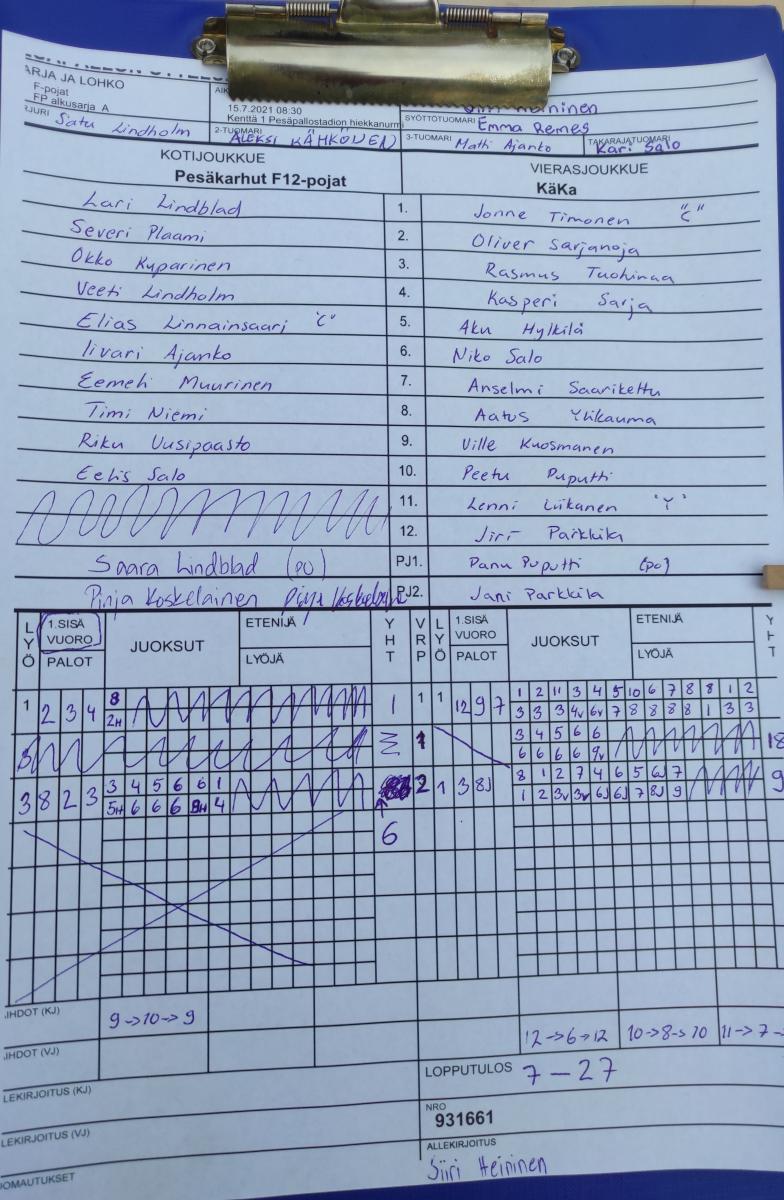 ARJA JA LOHKO
F-pojat
FP alkusarja A
15.7.2021 08:30
Kenttä 1 Pesäpallostadion hiekkanurmi
SYÖTTÖTUOMARI Emma Remes
Satu Lindholm
2-TUOMARI ALEKSI KÄHKÖNEN
3-TUOMARI Matti Ajanko
TAKARAJATUOMARI Kari Salo
KOTIJOUKKUE VIERASJOUKKUE
Pesäkarhut F12-pojat KäKa
Lari Lindblad 1. Jonne Timonen "C"
Severi Plaami 2. Oliver Sarjanoja
Okko Kyparinen 3. Rasmus
Veeti Lindholm 4. Kasperi Sarja
Elias Linnainsaari "C" 5. Aku Hylkilä
Iivari Ajanko 6. Niko Salo
Eemeli Muurinen 7. Anselmi Saarikettu
Timi Niemi 8. Aatus Ylikauma
Riku Uusipaasto 9. Ville Kuosmanen
Eelis Salo 10. Peetu Puputti
11. Lenni Liikanen "Y"
12. Jiri Parkkila
Saara Lindblad (PU) PJ1. Panu Puputti (po)
Pinja Koskelainen PJ2. Jani Parkkila
LYÖ 1.SISÄ VUORO PALOT JUOKSUT ETENIJÄ LYÖJÄ YHT VRP LYÖ 1.SISÄ VUORO PALOT JUOKSUT ETENIJÄ LYÖJÄ YHT
1 2 3 4 8 1 1 1 12 9 7 1 2 11 3 4 5 10 6 7 8 8 1 2
2H 3 3 3 4v 6v 7 8 8 8 8 1 3 3
3 4 5 6 6 18
6 6 6 6 9v
3 8 2 3 3 4 5 6 6 1 2 1 3 8J 8 1 2 7 4 6 5 6J 7 9
5H 6 6 6 9H 4 1 2 3v 3v 6J 6J 7 8J 9
6
IHDOT (KJ) 9->10->9
IHDOT (VJ) 12->6->12 10->8->10 11->7-
LEKIRJOITUS (KJ) LOPPUTULOS 7-27
NRO
931661
LEKIRJOITUS (VJ) ALLEKIRJOITUS
Siiri Heininen
OMAUTUKSET